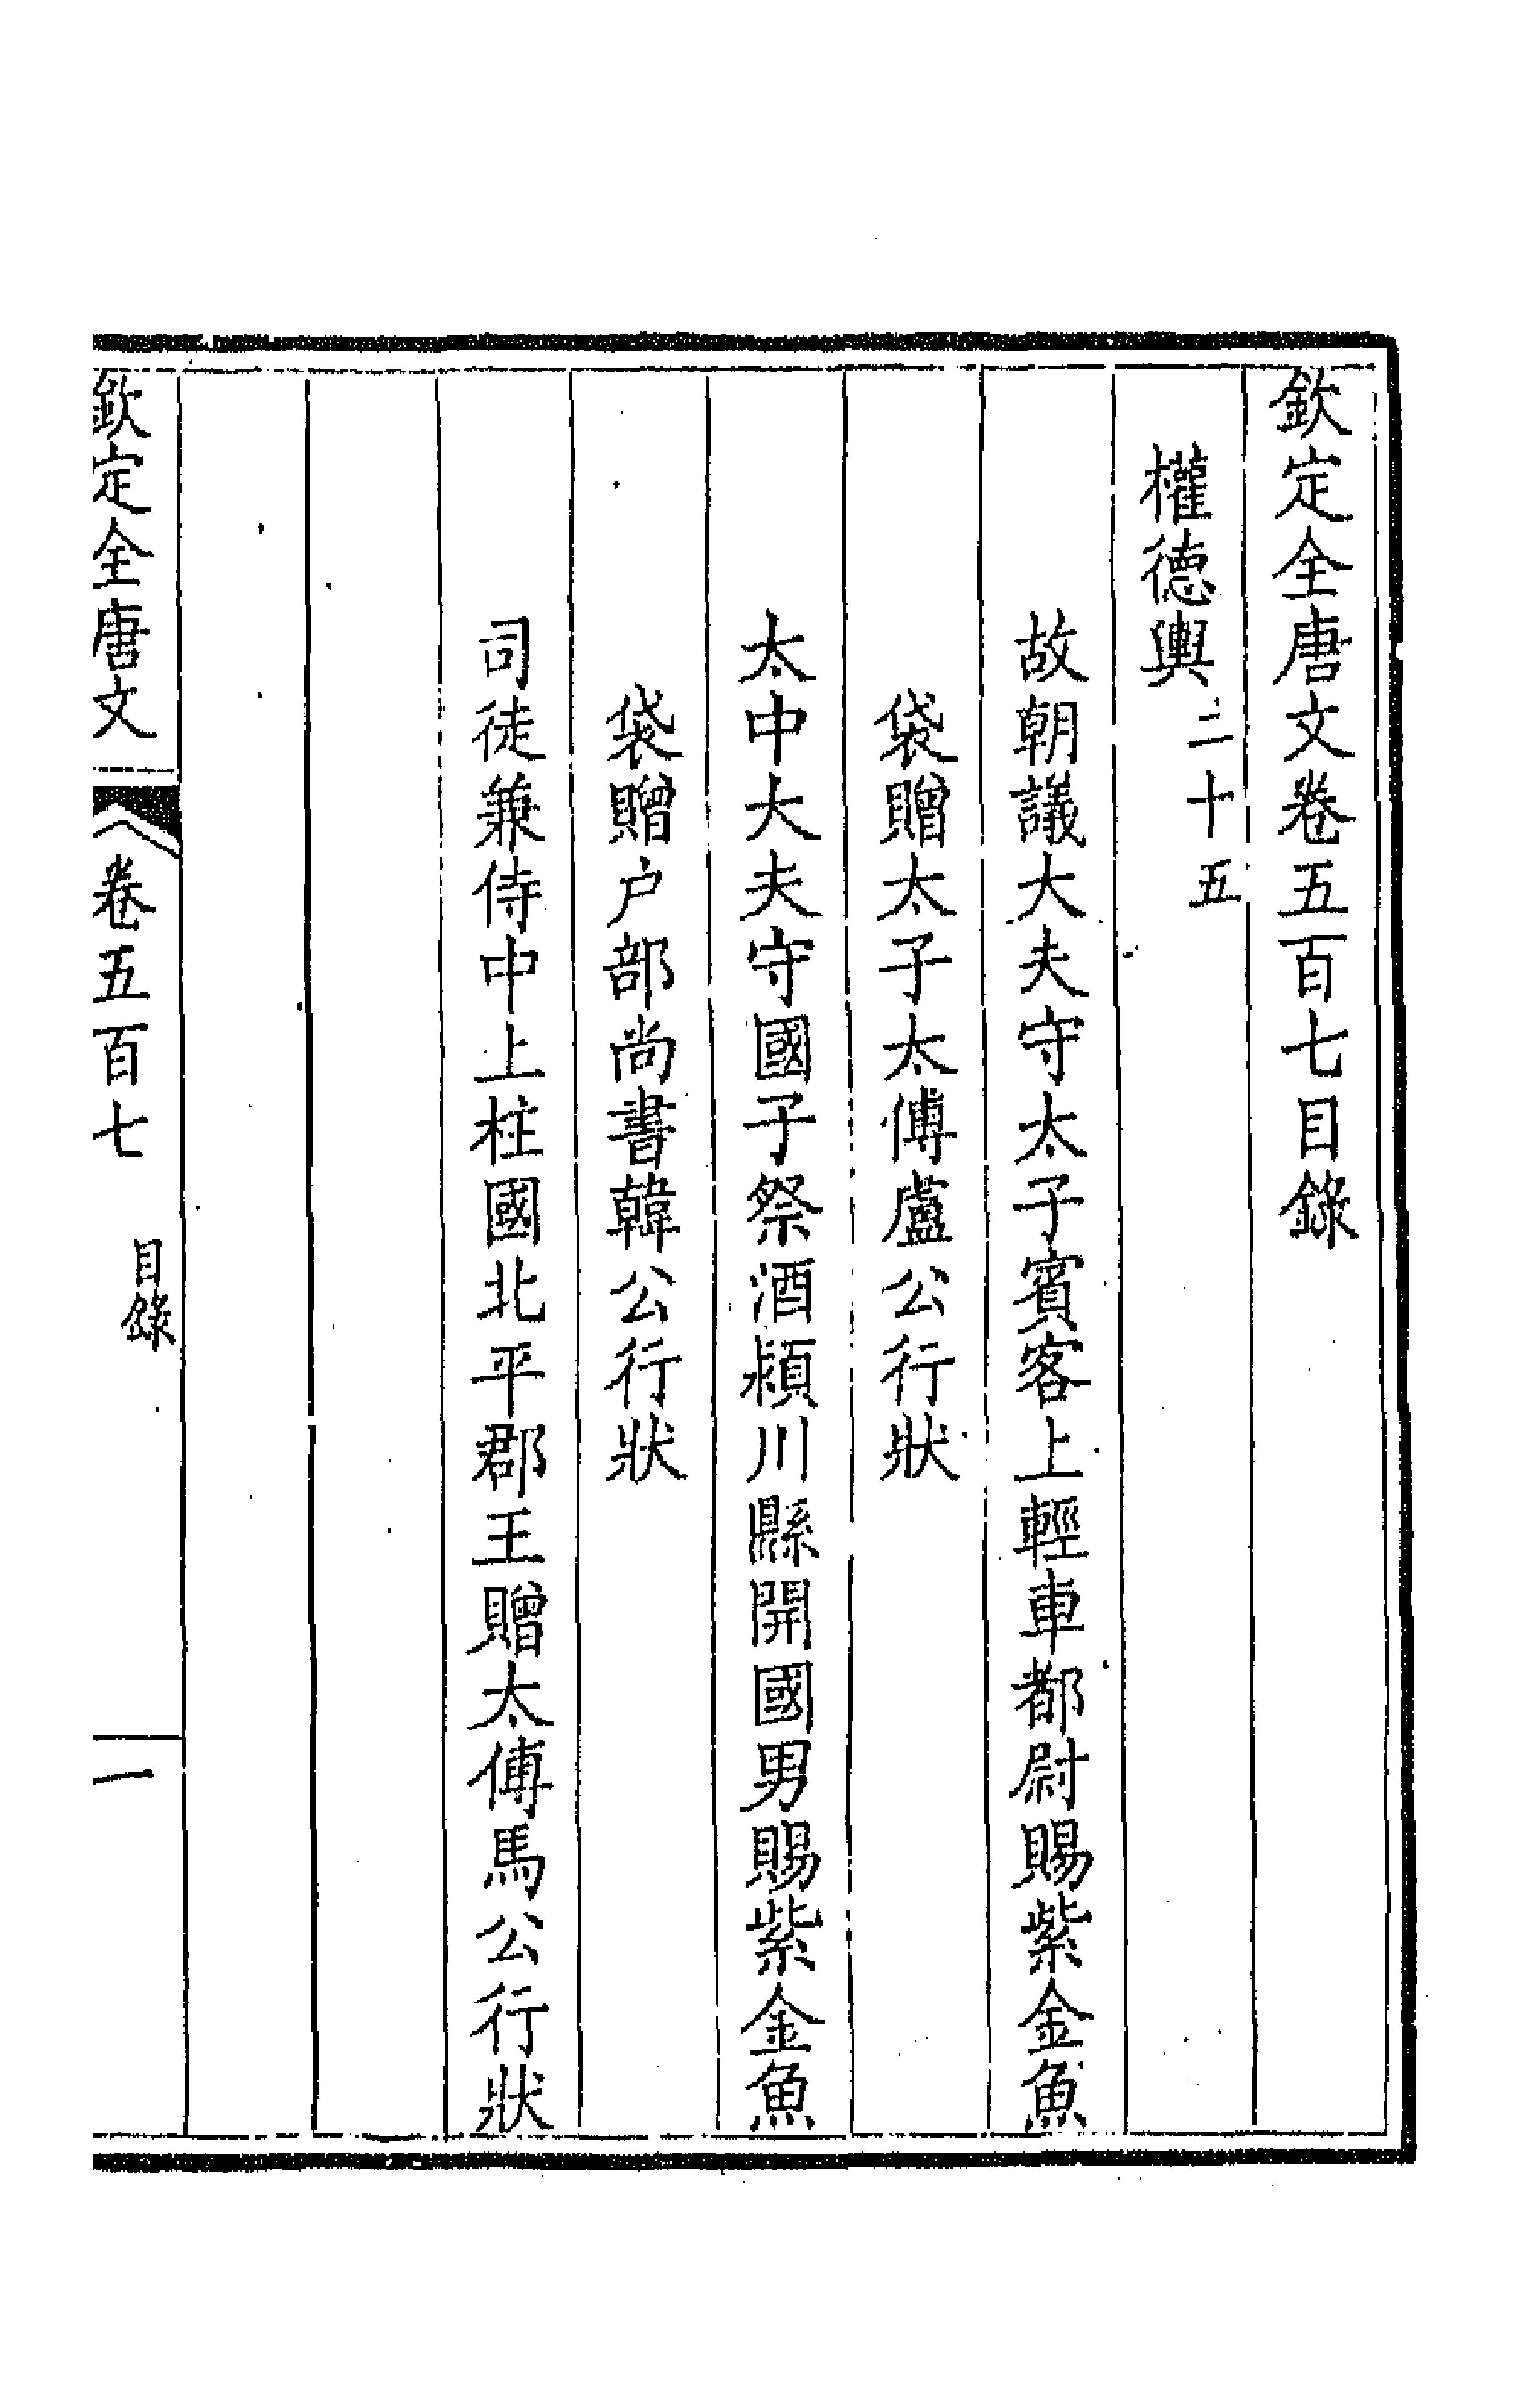 欽定全唐文卷五百七目錄
權德輿二十五
故朝議大夫守太子賓客上輕車都尉賜紫金魚
袋贈太子太傅盧公行狀
太中大夫守國子祭酒潁川縣開國男賜紫金魚
袋贈户部尚書韓公行狀
司徒兼侍中上柱國北平郡王贈太傅馬公行狀
欽定全唐文 卷五百七 目錄 一